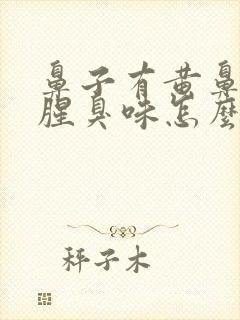 鼻子有黄鼻
腥臭味怎麼
秤子木